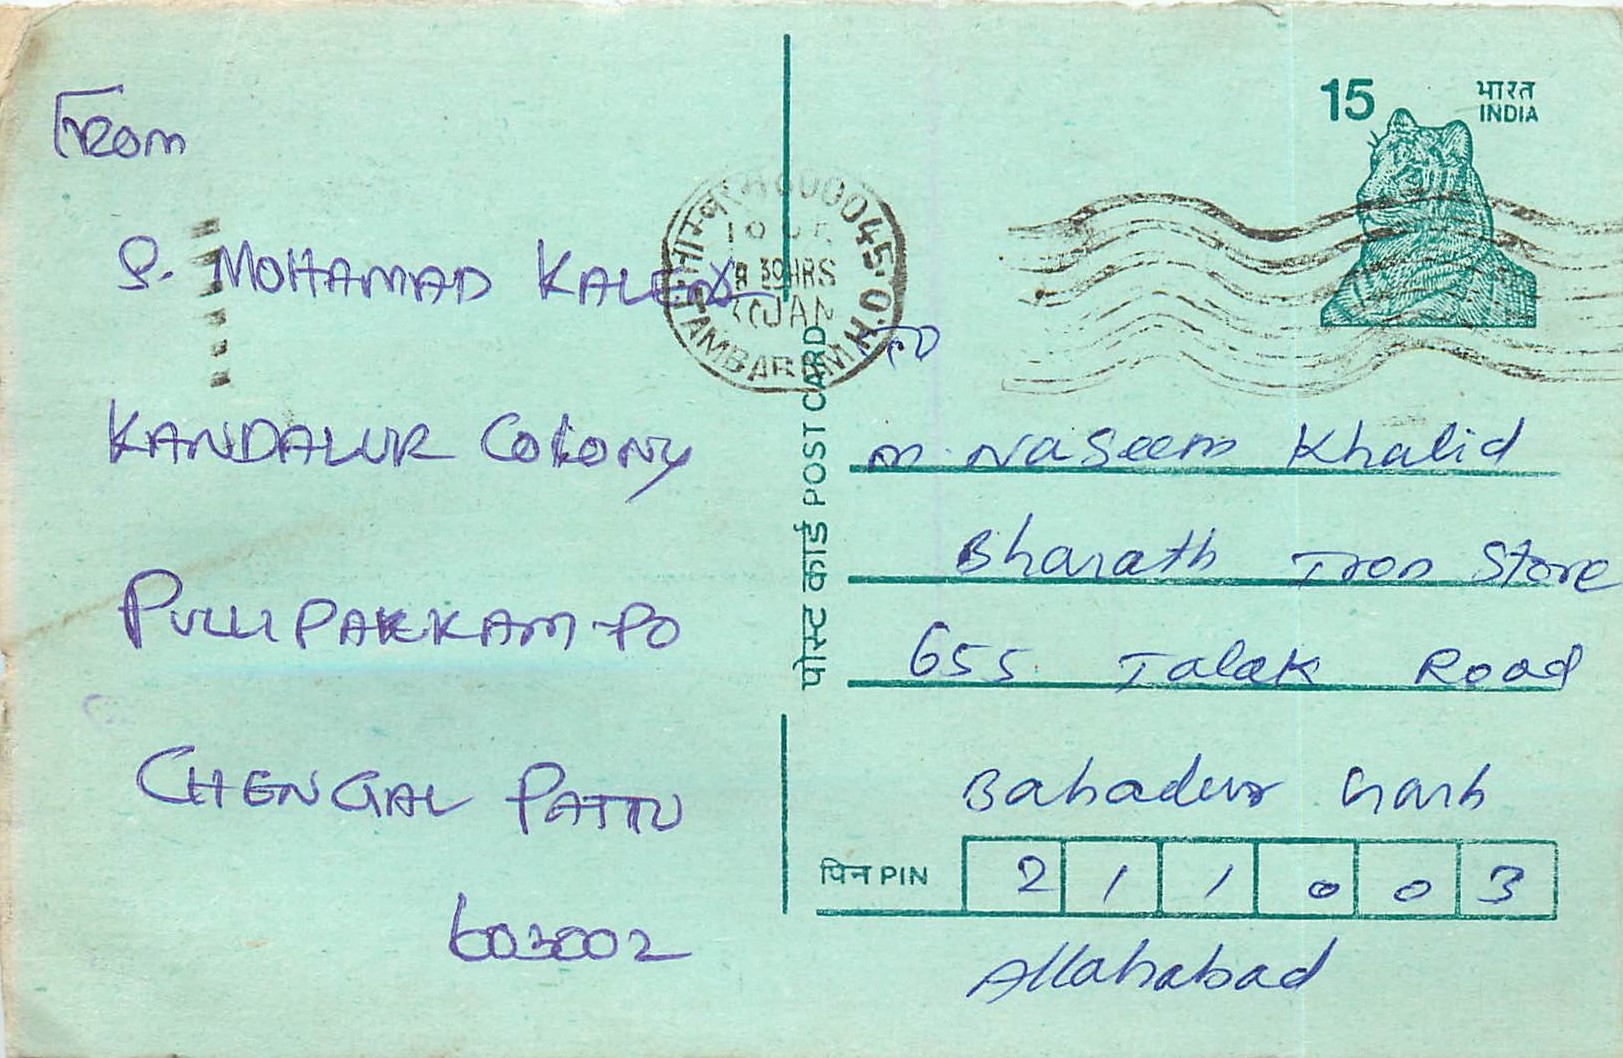 From
S. MOHAMAD KALEEL
KANDALUR COLONY
PULLIPAKKAM-PO
CHENGAL PATTU
603002
15 भारत
INDIA
600045
30 HRS
JAN
TAMBARAM H.O.
पोस्ट कार्ड POST CARD
TO
M. Naseem Khalid
Bharath Iron Store
655 Talak Road
Bahadur Garh
पिन PIN 2 1 1 0 0 3
Allahabad